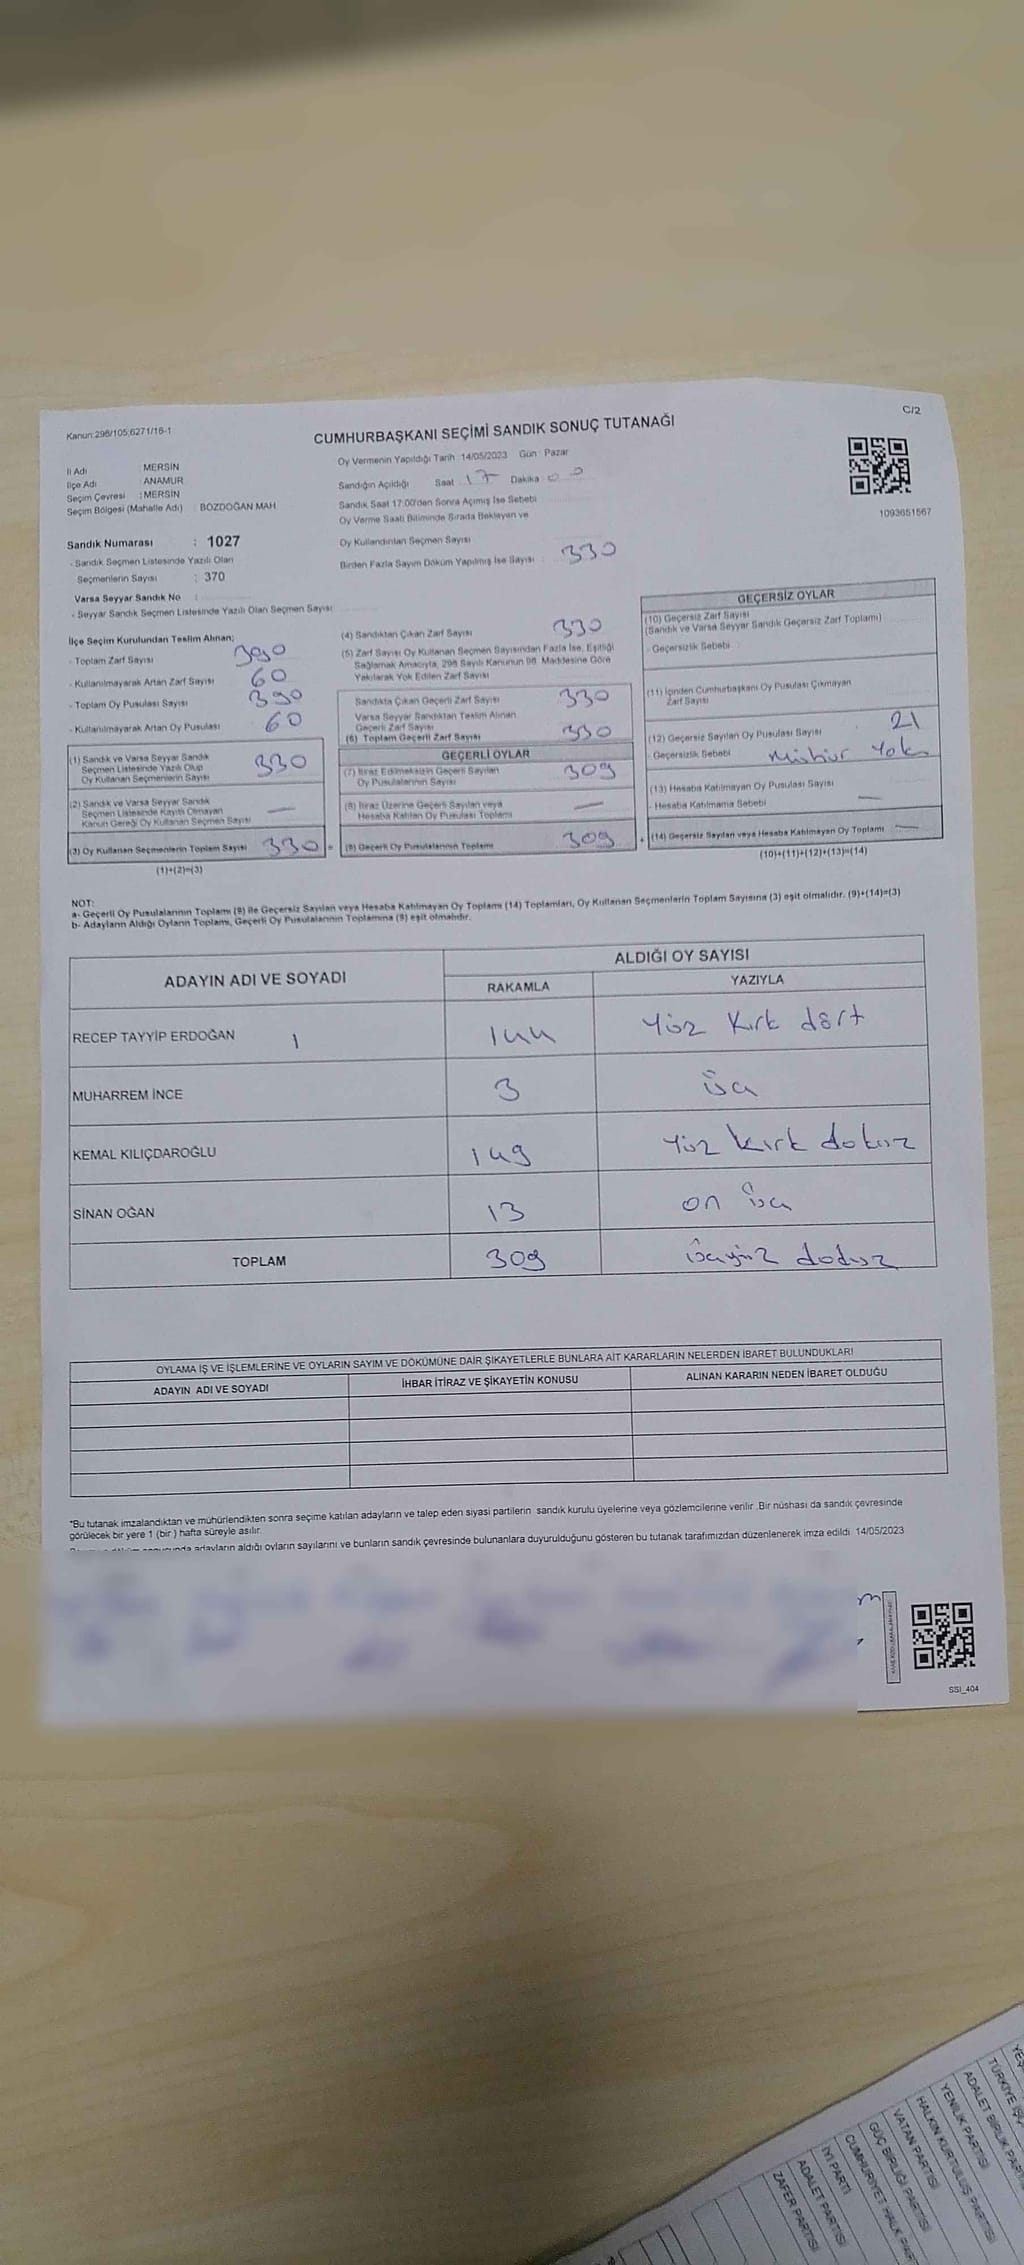 Kanun:298/105;6271/16-1
C/2
CUMHURBAŞKANI SEÇİMİ SANDIK SONUÇ TUTANAĞI
İl Adı : MERSİN
İlçe Adı : ANAMUR
Seçim Çevresi : MERSİN
Seçim Bölgesi (Mahalle Adı) : BOZDOĞAN MAH.
Sandık Numarası : 1027
- Sandık Seçmen Listesinde Yazılı Olan
Seçmenlerin Sayısı : 370
Varsa Seyyar Sandık No :
- Seyyar Sandık Seçmen Listesinde Yazılı Olan Seçmen Sayısı
Oy Vermenin Yapıldığı Tarih : 14/05/2023 Gün : Pazar
Sandığın Açıldığı Saat 17 Dakika 00
Sandık Saat 17:00'den Sonra Açılmış İse Sebebi
Oy Verme Saati Bitiminde Sırada Bekleyen ve
Oy Kullandırılan Seçmen Sayısı
Birden Fazla Sayım Döküm Yapılmış İse Sayısı 330
1093651567
İlçe Seçim Kurulundan Teslim Alınan;
- Toplam Zarf Sayısı 390
- Kullanılmayarak Artan Zarf Sayısı 60
- Toplam Oy Pusulası Sayısı 390
- Kullanılmayarak Artan Oy Pusulası 60
(1) Sandık ve Varsa Seyyar Sandık
Seçmen Listesinde Yazılı Olup
Oy Kullanan Seçmenlerin Sayısı 330
(2) Sandık ve Varsa Seyyar Sandık
Seçmen Listesinde Kayıtlı Olmayan
Kanun Gereği Oy Kullanan Seçmen Sayısı —
(3) Oy Kullanan Seçmenlerin Toplam Sayısı 330 =
(1)+(2)=(3)
(4) Sandıktan Çıkan Zarf Sayısı 330
(5) Zarf Sayısı Oy Kullanan Seçmen Sayısından Fazla İse, Eşitliği
Sağlamak Amacıyla, 298 Sayılı Kanunun 98. Maddesine Göre
Yakılarak Yok Edilen Zarf Sayısı
Sandıkta Çıkan Geçerli Zarf Sayısı 330
Varsa Seyyar Sandıktan Teslim Alınan
Geçerli Zarf Sayısı
(6) Toplam Geçerli Zarf Sayısı 330
GEÇERLİ OYLAR
(7) İtiraz Edilmeksizin Geçerli Sayılan
Oy Pusulalarının Sayısı 309
(8) İtiraz Üzerine Geçerli Sayılan veya
Hesaba Katılan Oy Pusulası Toplamı —
(9) Geçerli Oy Pusulalarının Toplamı 309 +
GEÇERSİZ OYLAR
(10) Geçersiz Zarf Sayısı
(Sandık ve Varsa Seyyar Sandık Geçersiz Zarf Toplamı)
- Geçersizlik Sebebi
(11) İçinden Cumhurbaşkanı Oy Pusulası Çıkmayan
Zarf Sayısı
(12) Geçersiz Sayılan Oy Pusulası Sayısı 21
- Geçersizlik Sebebi mühür yok
(13) Hesaba Katılmayan Oy Pusulası Sayısı
- Hesaba Katılmama Sebebi —
(14) Geçersiz Sayılan veya Hesaba Katılmayan Oy Toplamı —
(10)+(11)+(12)+(13)=(14)
NOT:
a- Geçerli Oy Pusulalarının Toplamı (9) ile Geçersiz Sayılan veya Hesaba Katılmayan Oy Toplamı (14) Toplamları, Oy Kullanan Seçmenlerin Toplam Sayısına (3) eşit olmalıdır. (9)+(14)=(3)
b- Adayların Aldığı Oyların Toplamı, Geçerli Oy Pusulalarının Toplamına (9) eşit olmalıdır.
ADAYIN ADI VE SOYADI
ALDIĞI OY SAYISI
RAKAMLA YAZIYLA
RECEP TAYYİP ERDOĞAN 1 144 Yüz Kırk dört
MUHARREM İNCE 3 üç
KEMAL KILIÇDAROĞLU 149 Yüz kırk dokuz
SİNAN OĞAN 13 on üç
TOPLAM 309 üçyüz doduz
OYLAMA İŞ VE İŞLEMLERİNE VE OYLARIN SAYIM VE DÖKÜMÜNE DAİR ŞİKAYETLERLE BUNLARA AİT KARARLARIN NELERDEN İBARET BULUNDUKLARI
ADAYIN ADI VE SOYADI İHBAR İTİRAZ VE ŞİKAYETİN KONUSU ALINAN KARARIN NEDEN İBARET OLDUĞU
*Bu tutanak imzalandıktan ve mühürlendikten sonra seçime katılan adayların ve talep eden siyasi partilerin sandık kurulu üyelerine veya gözlemcilerine verilir .Bir nüshası da sandık çevresinde
görülecek bir yere 1 (bir ) hafta süreyle asılır.
adayların aldığı oyların sayılarını ve bunların sandık çevresinde bulunanlara duyurulduğunu gösteren bu tutanak tarafımızdan düzenlenerek imza edildi. 14/05/2023
SSI_404
YEŞ
TÜRKİYE İŞÇ
ADALET BİRLİK PAR
YENİLİK PARTİSİ
HALKIN KURTULUŞ PARTİSİ
VATAN PARTİSİ
GÜÇ BİRLİĞİ PARTİSİ
CUMHURİYET HALK PAR
İYİ PARTİ
ADALET PARTİSİ
ZAFER PARTİSİ